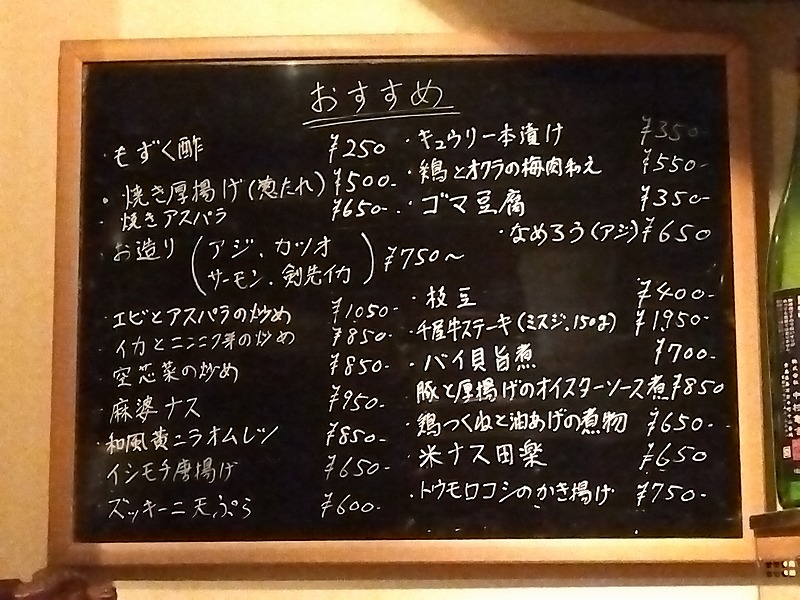 おすすめ
・もずく酢 ¥250
・焼き厚揚げ(葱たれ) ¥500-
・焼きアスパラ ¥650-
・お造り(アジ、カツオ
サーモン、剣先イカ) ¥750〜
・エビとアスパラの炒め ¥1050-
・イカとニンニク芽の炒め ¥850-
・空芯菜の炒め ¥850-
・麻婆ナス ¥950-
・和風黄ニラオムレツ ¥850-
・イシモチ唐揚げ ¥650-
・ズッキーニ天ぷら ¥600-
・キュウリ一本漬け ¥350-
・鶏とオクラの梅肉和え ¥550-
・ゴマ豆腐 ¥350-
・なめろう(アジ) ¥650
・枝豆 ¥400-
・千屋牛ステーキ(ミスジ.150g) ¥1950-
・バイ貝旨煮 ¥700-
・豚と厚揚げのオイスターソース煮 ¥850
・鶏つくねと油あげの煮物 ¥650-
・米ナス田楽 ¥650
・トウモロコシのかき揚げ ¥750-